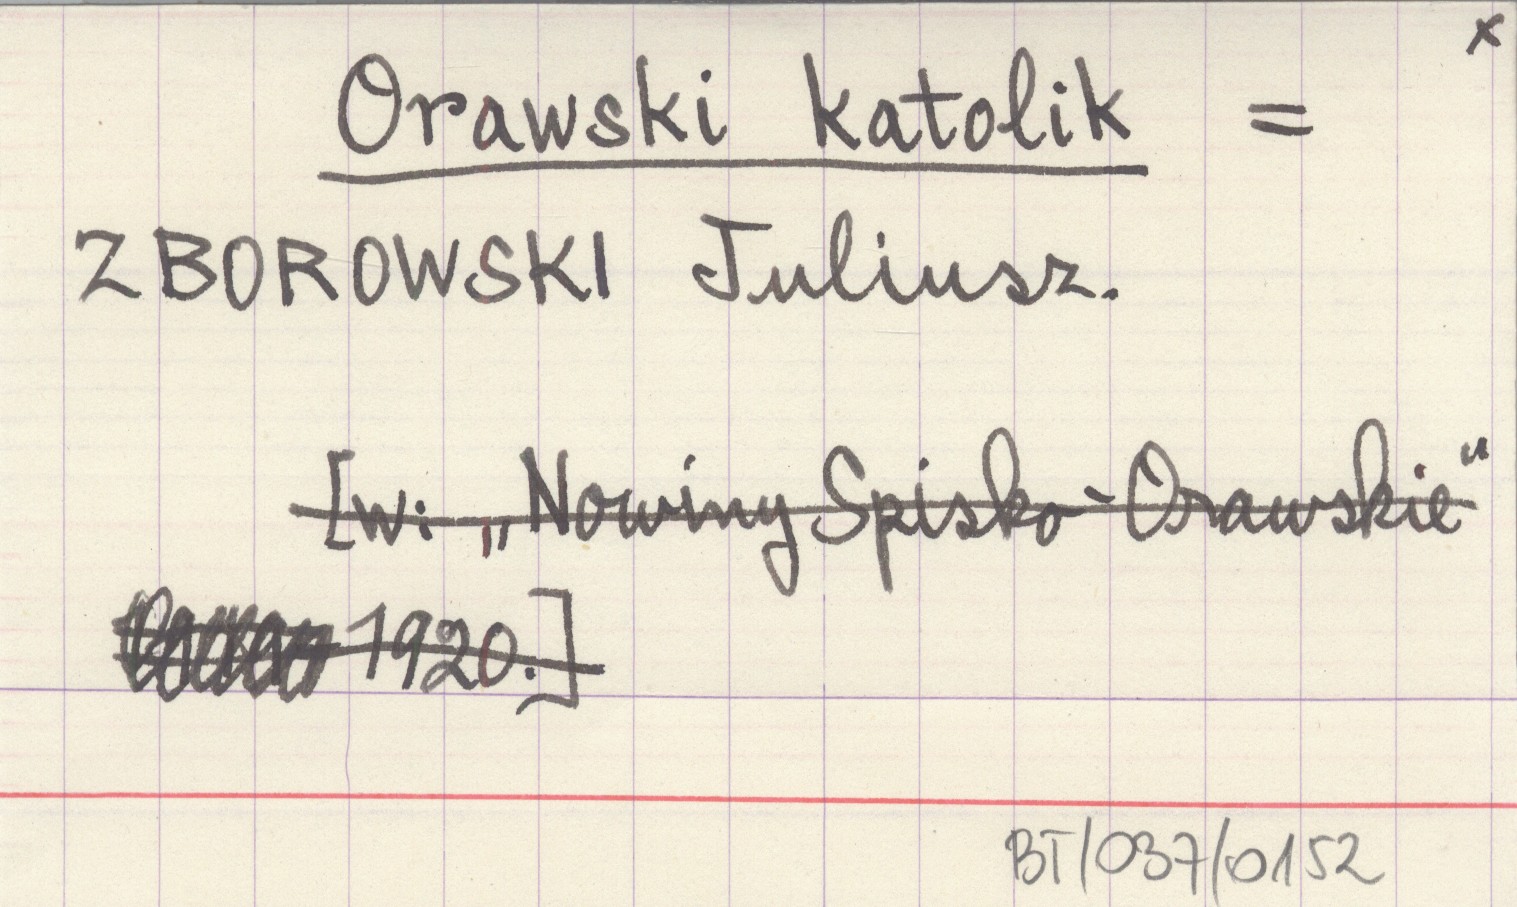 x
Orawski katolik =
ZBOROWSKI Juliusz.
[w: „Nowiny Spisko-Orawskie"
1920.]
BT/037/0152